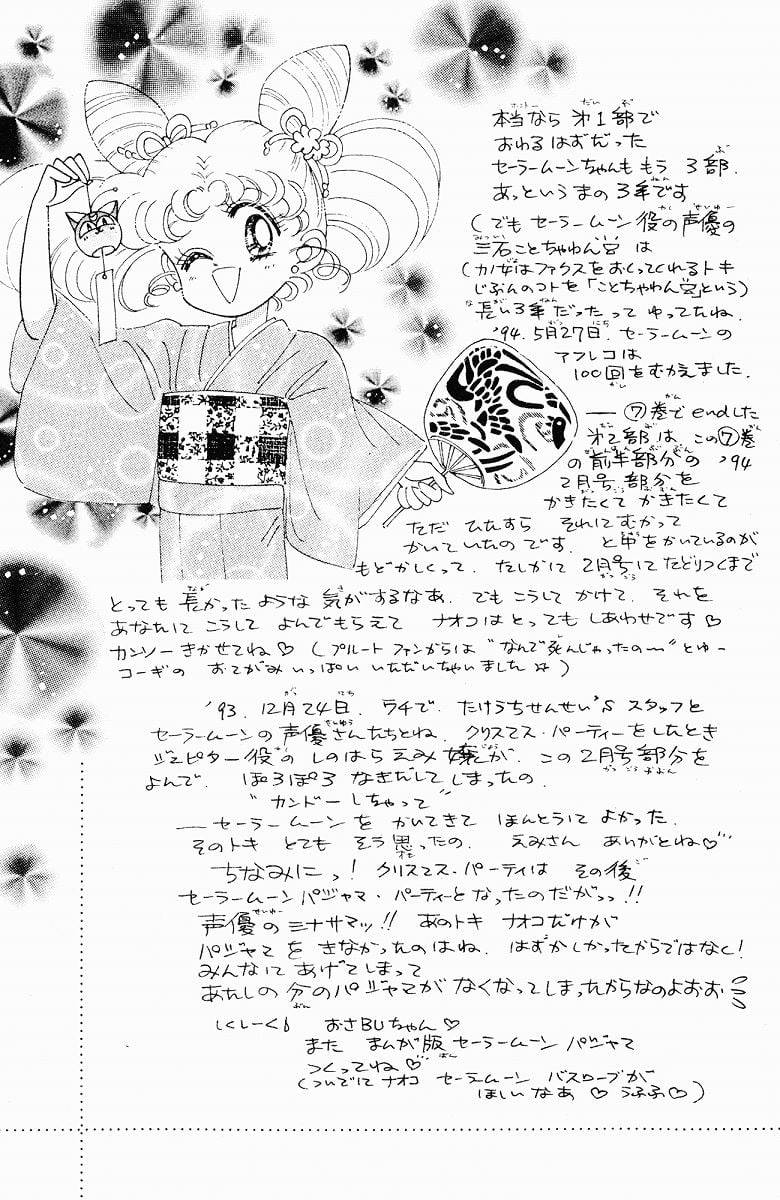 本当なら 第1部で
おわるはずだった
セーラームーンちゃんも もう 3部.
あっというまの 3年です
(でも セーラームーン役の声優の
三石ことちゃわん宮 は
(カノ女はファクスをおくってくれるトキ
じぶんのコトを「ことちゃわん宮」という)
長い3年だったって ゆってたね.
'94.5月27日.セーラームーンの
アフレコは
100回をむかえました.
―― ⑦巻でendした
第2部は、この⑦巻
の前半部分の '94
2月号部分を
かきたくて かきたくて
ただ ひたすら それにむかって
かいていたのです. と中をかいているのが
もどかしくって. たしかに 2月号にたどりつくまで
とっても 長かったような 気がするなあ. でも こうして かけて. それを
あなたに こうして よんでもらえて ナオコ はとっても しあわせです♡
カンソー きかせてね♡ (プルート ファンからは “なんで死んじゃったの〜” とゆー
コーギの おてがみ いっぱい いただいちゃいました☆)
'93.12月24日. ウチで. たけうちせんせい'S スタッフと
セーラームーンの声優さんたちとね. クリスマス・パーティーをしたとき
ジュピター役の しのはら えみ 嬢が. この 2月号部分を
よんで. ぽろぽろ なきだしてしまったの.
“カンドーしちゃって”
―― セーラームーン を かいてきて ほんとうに よかった.
そのトキ とても そう思ったの. えみさん ありがとね♡
ちなみにっ! クリスマス・パーティは その後
セーラームーン パジャマ・パーティーとなったのだがっっ!!
声優のミナサマッ!! あのトキ ナオコだけが
パジャマ を きなかったのはね. はずかしかったからではなく!
みんなに あげてしまって
あたしの 分のパジャマが なくなってしまったからなのよおお
しくしーく おさBUちゃん♡
また まんが版 セーラームーン パジャマ
つくってね♡
(ついでに ナオコ セーラームーン バスローブが
ほしいなあ♡ うふふ♡)